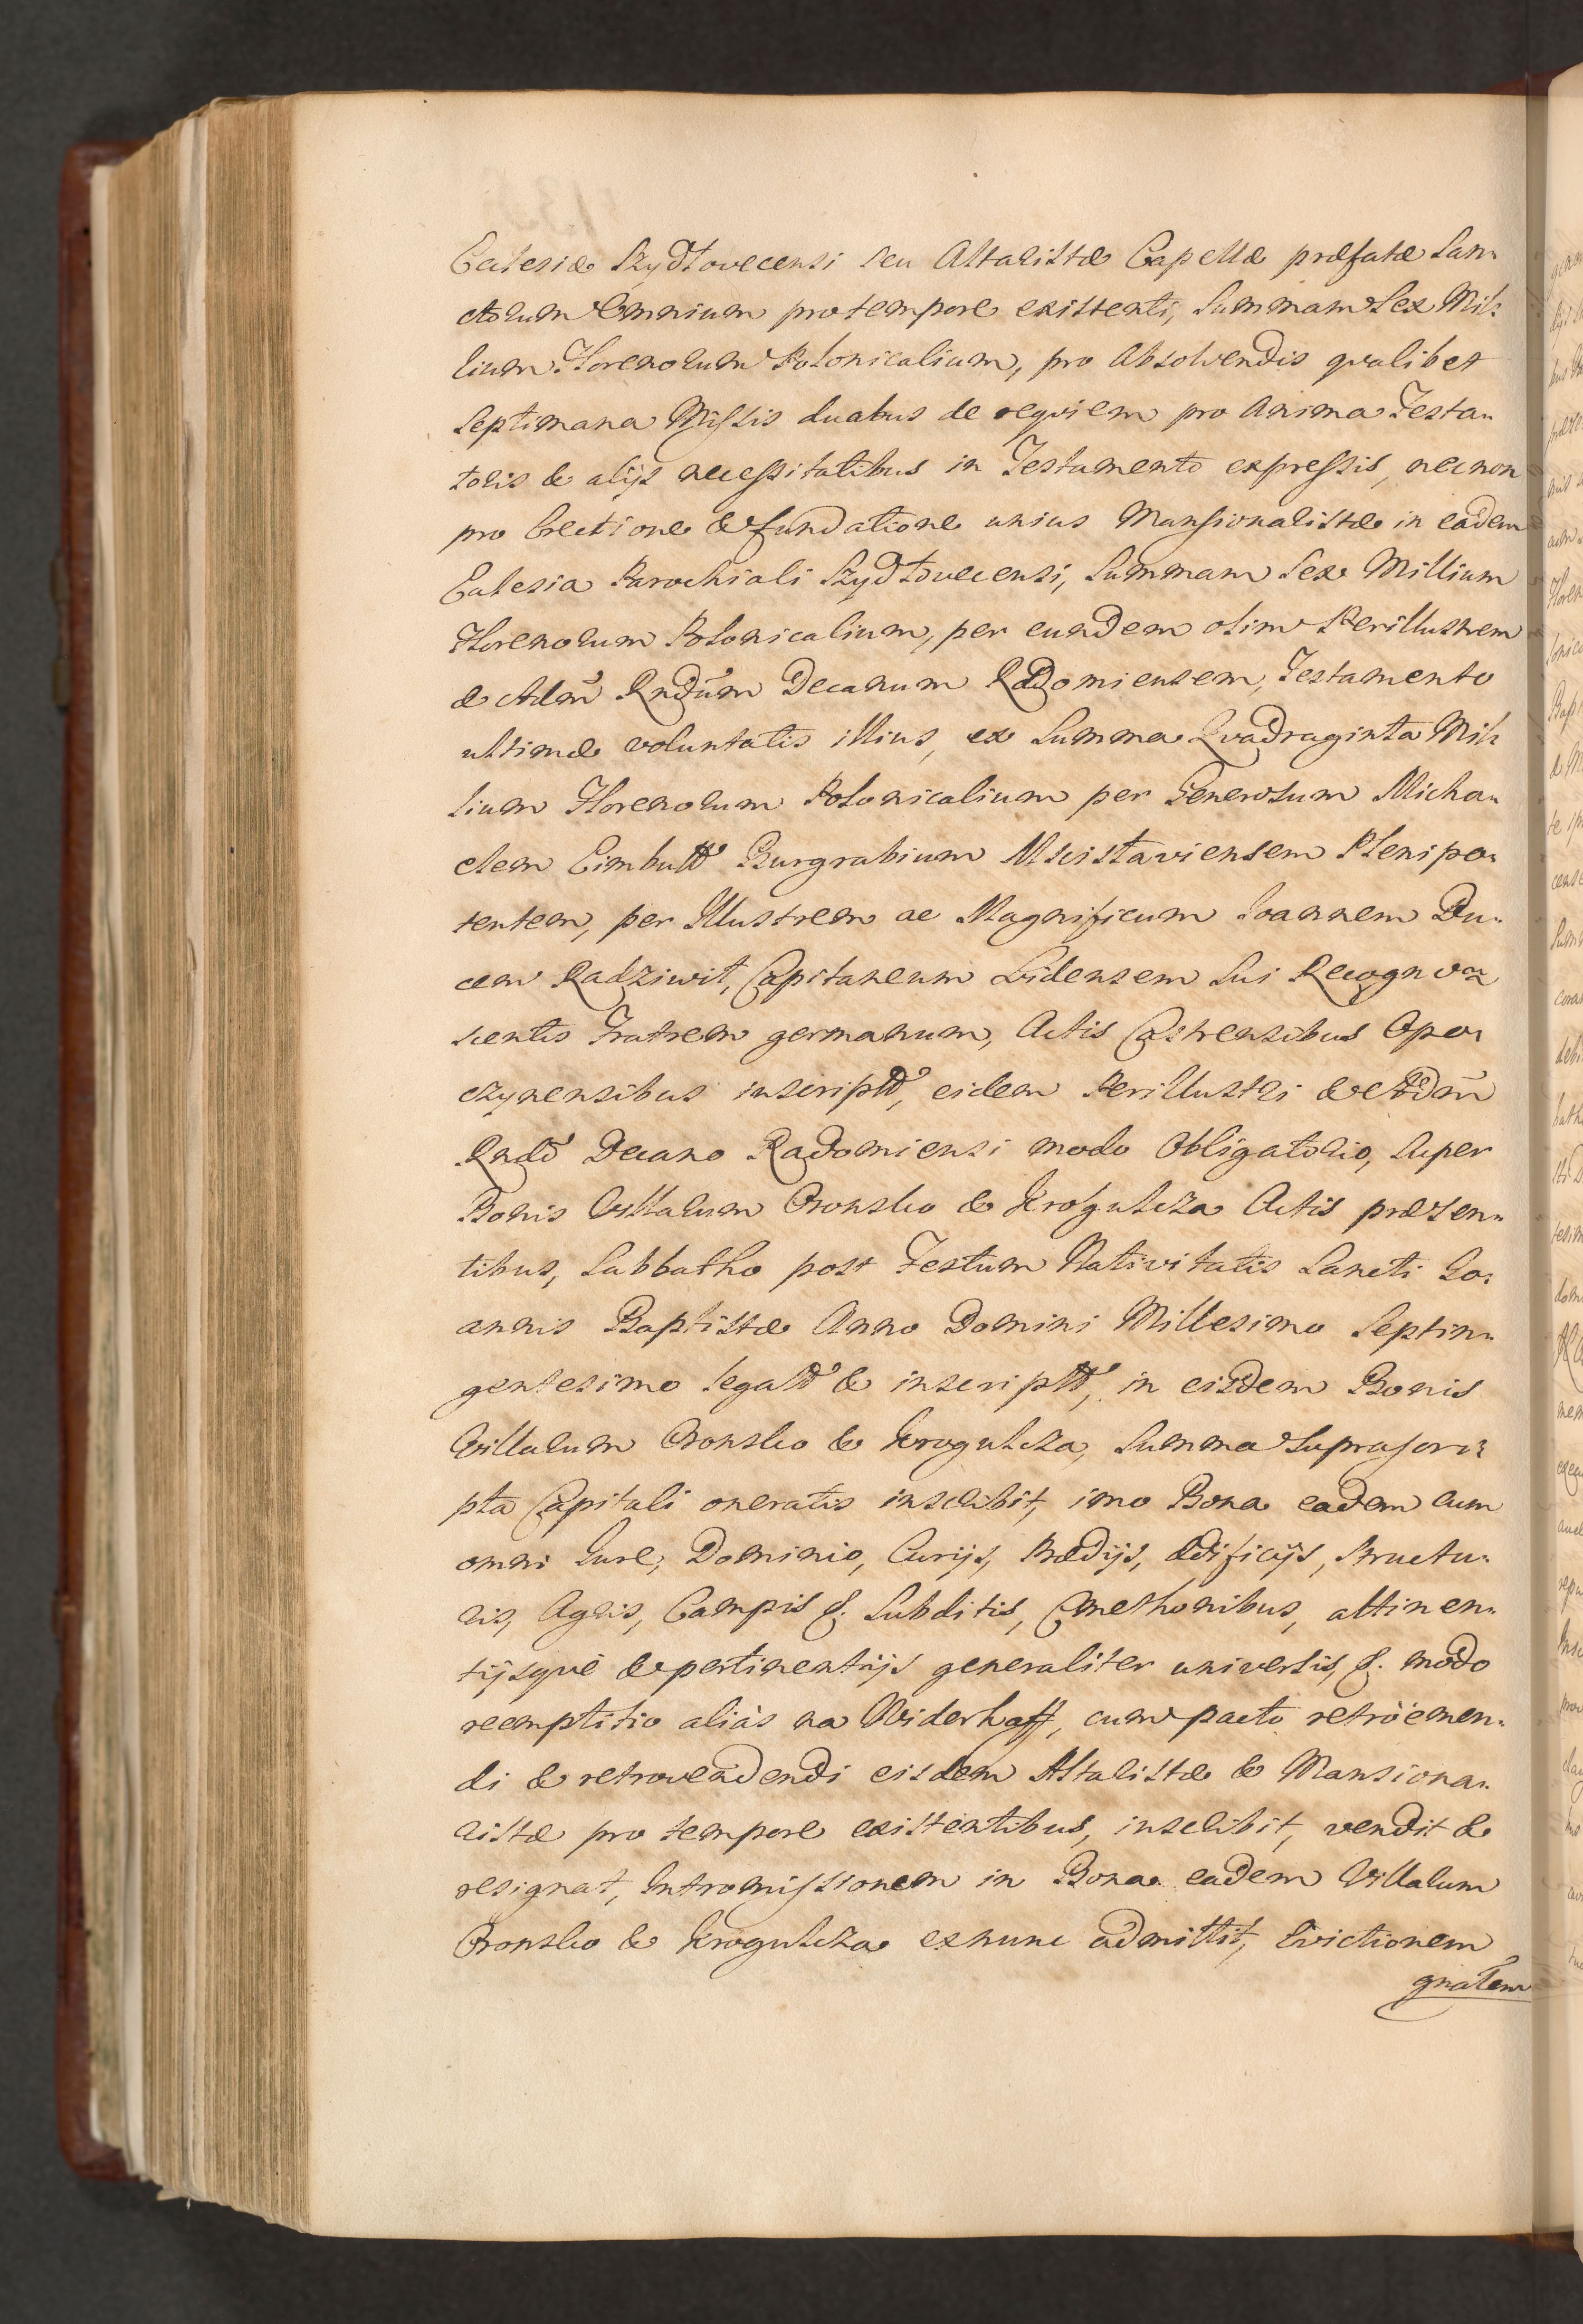 Eclesiæ Szydłovecensi seu Altaristæ Capellæ præfatæ San-
ctorum Omnium pro tempore existenti, Summam Sex Mil-
lium Florenorum Polonicalium, pro absolvendis qvalibet
Septimana Missis duabus de reqviem pro Anima Testa-
toris & alijs necessitatibus in Testamento expressis, necnon
pro Erectione & fundatione unius Mansionaristæ in eadem
Eclesia Parochiali Szydłovecensi, Summam Sex Millium
Florenorum Polonicalium, per eundem olim Perillustrem
& Adm̃ Rndũm Decanum Radomiensem, Testamento
ultimæ voluntatis illius, ex Summa Qvadraginta Mil-
lium Florenorum Polonicalium per Generosum Micha-
elem Eimbutt Burgrabium Mscislaviensem Plenipo-
tentem, per Illustrem ac Magnificum Joannem Du-
cem Radziwił, Capitaneum Lidensem Sui Recogno-
scentis Fratrem germanum, Actis Castrensibus Opo-
czynensibus inscriptt, eidem Perillustri & Adm̃
Rndo Decano Radomiensi modo Obligatorio, Super
Bonis Villarum Oronsko & Krogulcza Actis præsen-
tibus, Sabbatho post Festum Nativitatis Sancti Jo-
annis Baptistæ Anno Domini Millesimo Septin-
gentesimo legatt & inscriptt, in eisdem Bonis
Villarum Oronsko & Krogulcza, Summa Suprascri-
pta Capitali oneratis inscribit, imo Bona eadem cum
omni Jure, Dominio, Curijs, Prædijs, ædificijs, Structu-
ris, Agris, Campis &. Subditis, Cmethonibus, attinen-
tijsqve & pertinentijs generaliter universis, &. modo
reemptitio aliàs na Widerkaff, cum pacto retròemen-
di & retrovendendi eisdem Altaristæ & Mansiona-
ristæ pro tempore existentibus, inscribit, vendit &
resignat, Intromissionem in Bona eadem Villarum
Oronsko & Krogulcza exnunc admittit, Evictionem
gnalem